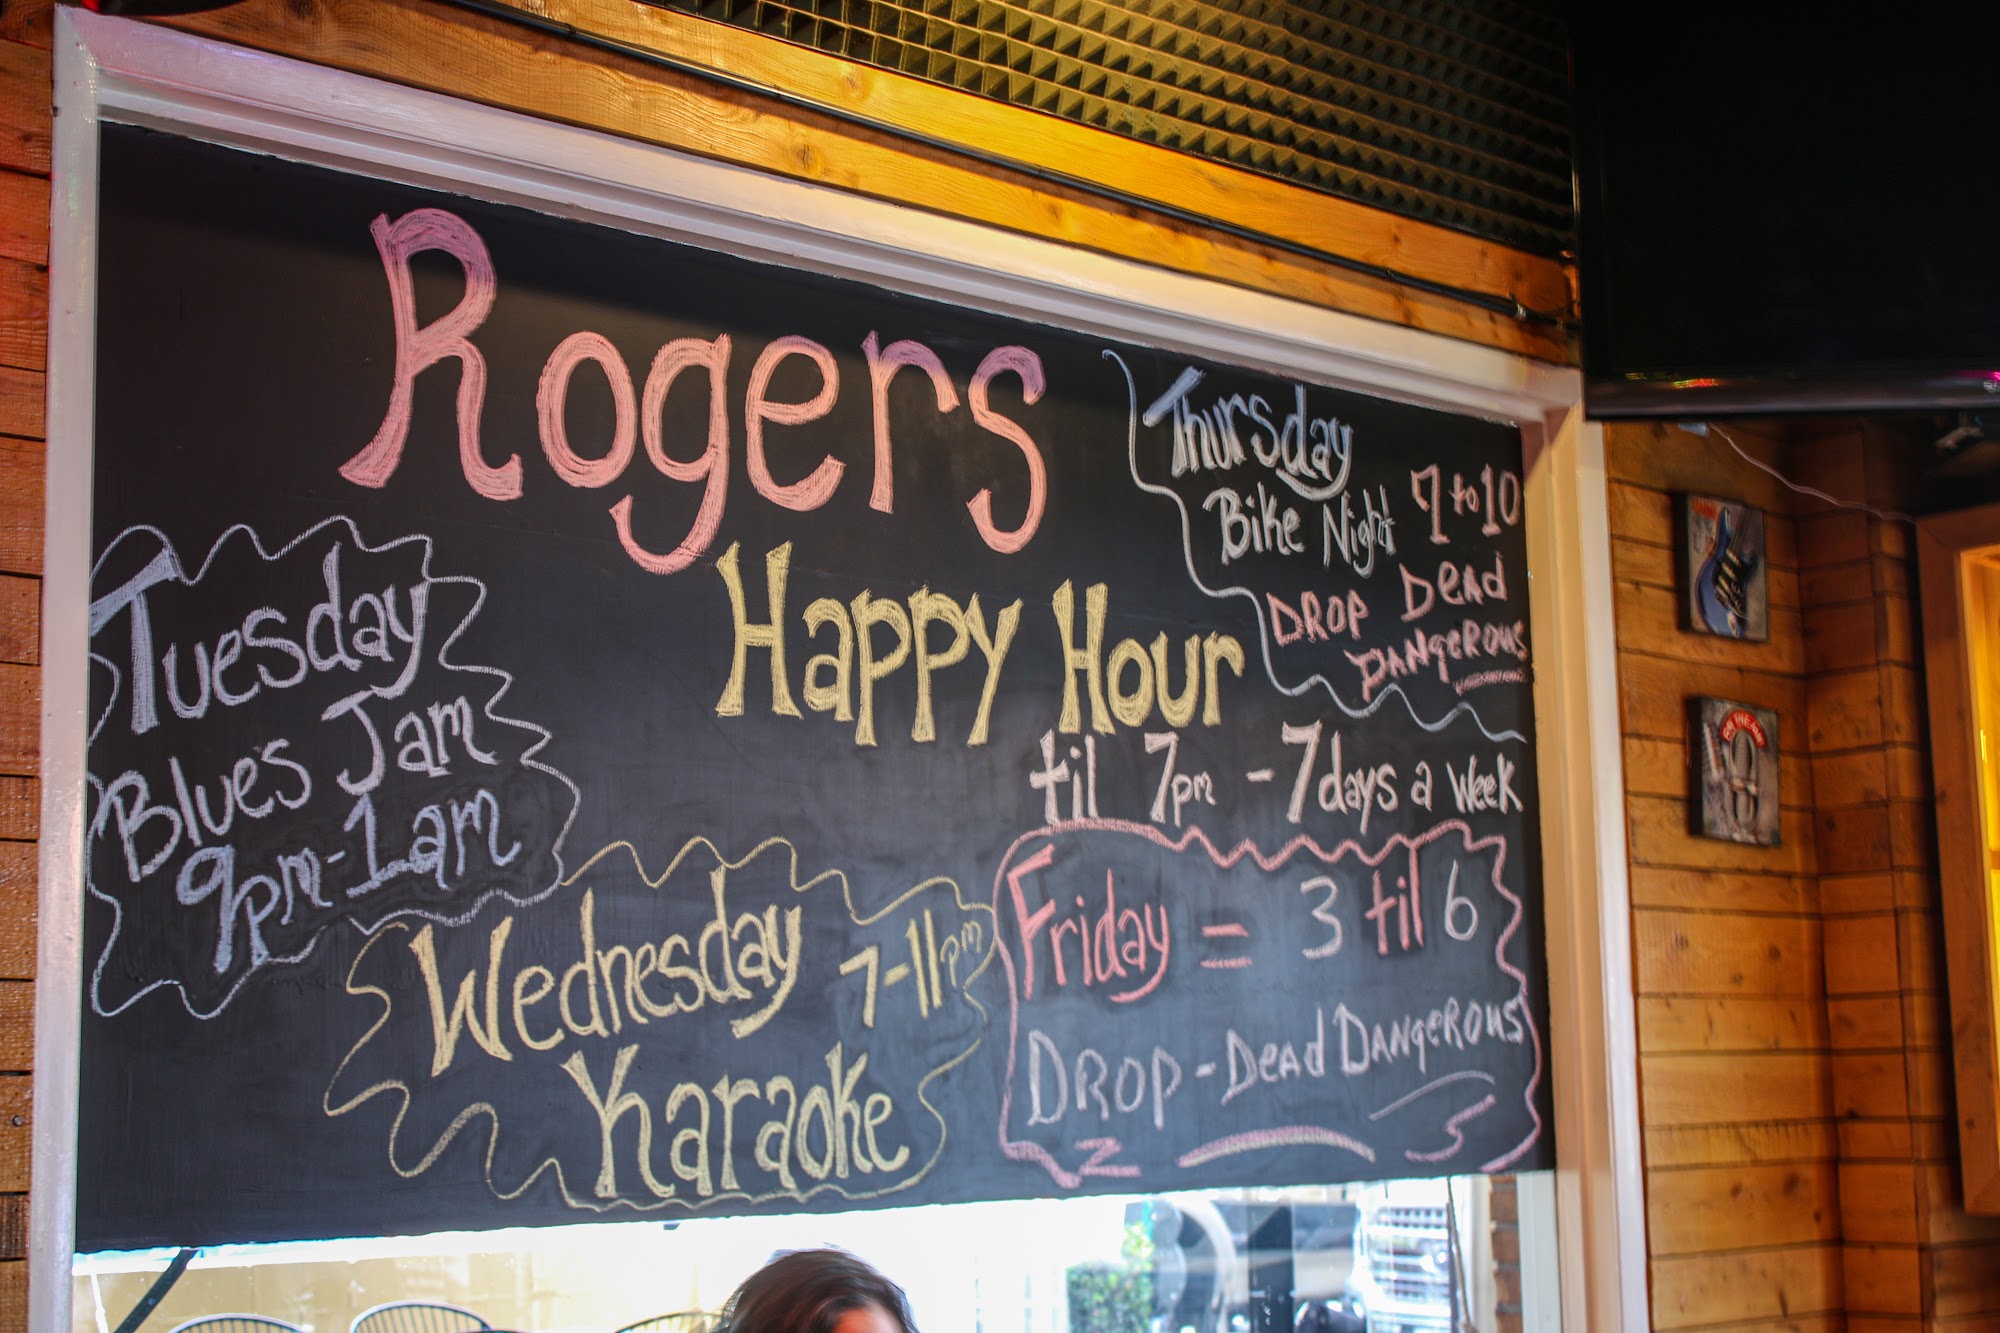 Rogers
Happy Hour
til 7pm - 7 days a week
Thursday
Bike Night 7 to 10
DROP DEAD
DANGEROUS
Tuesday
Blues Jam
9pm-1am
Wednesday 7-11pm
Karaoke
Friday = 3 til 6
DROP-DeadDANGeROUS
ON THE AIR